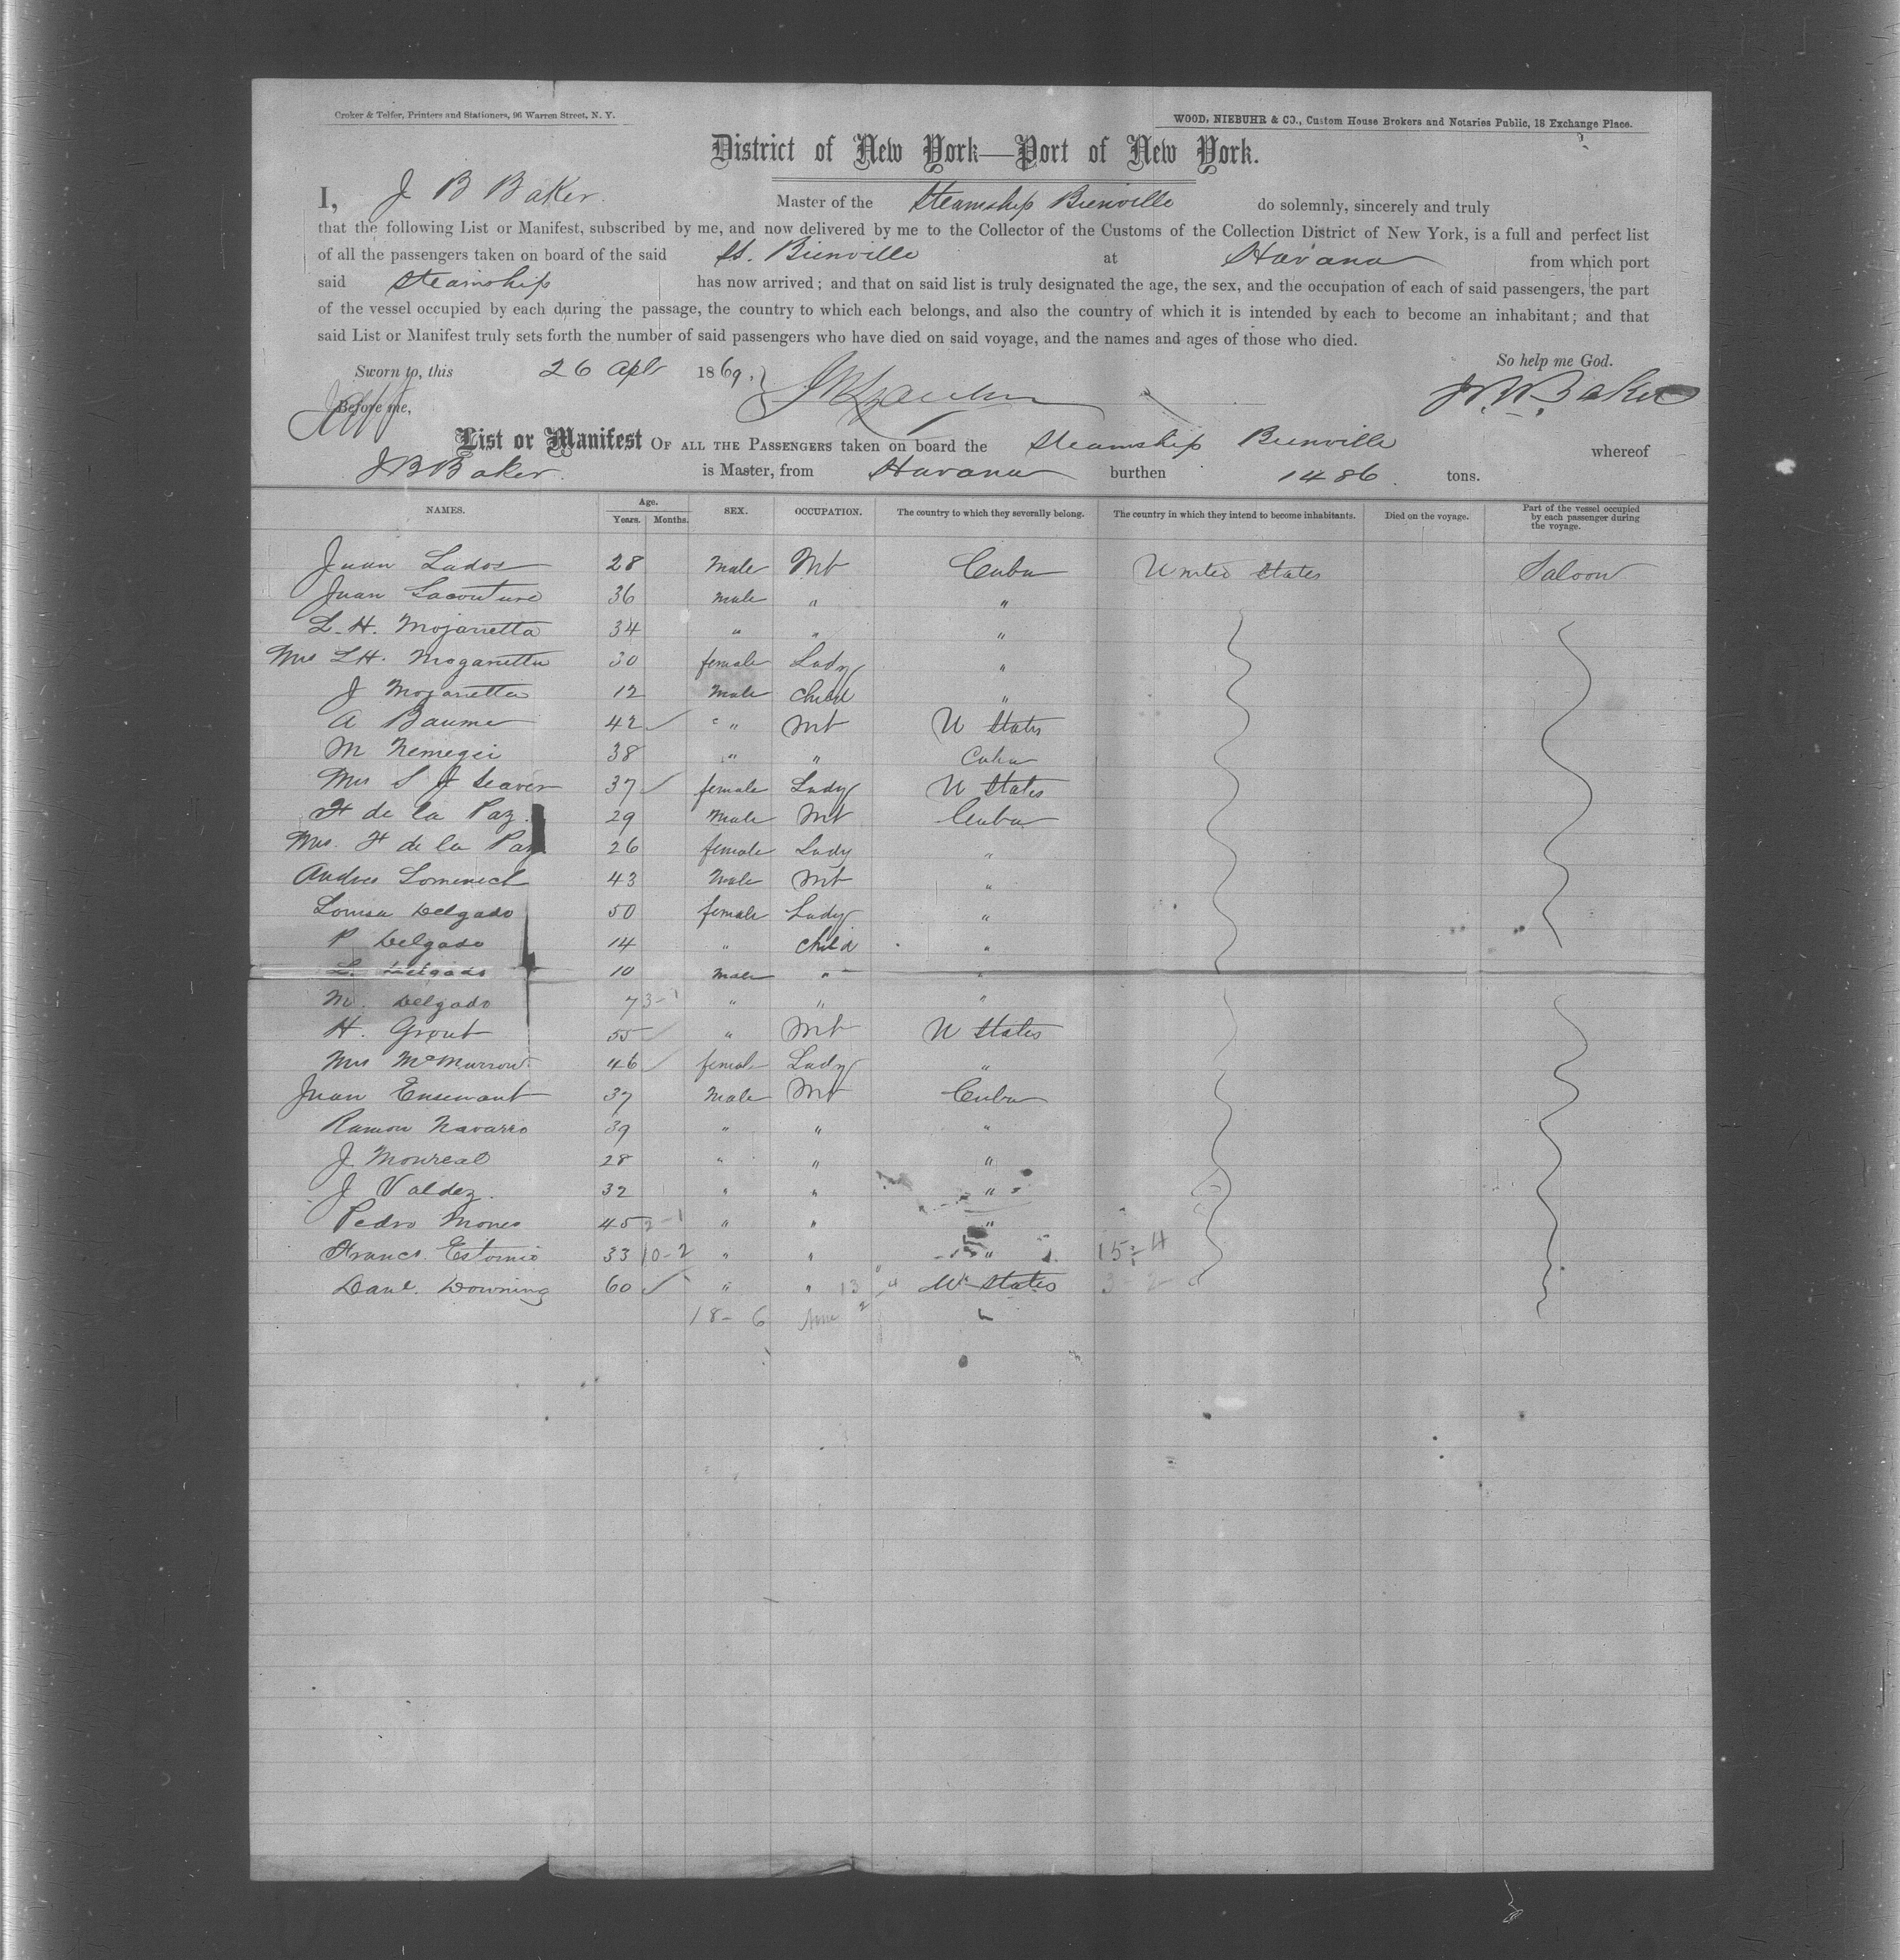 Croker & Telfer, Printers and Stationers, 96 Warren Street, N. Y.
WOOD, NIEBUHR & CO., Custom House Brokers and Notaries Public, 18 Exchange Place.
District of New York—Port of New York.
I, J B Baker. Master of the Steamship Bienville do solemnly, sincerely and truly
that the following List or Manifest, subscribed by me, and now delivered by me to the Collector of the Customs of the Collection District of New York, is a full and perfect list
of all the passengers taken on board of the said SS. Bienville at Havana from which port
said Steamship has now arrived; and that on said list is truly designated the age, the sex, and the occupation of each of said passengers, the part
of the vessel occupied by each during the passage, the country to which each belongs, and also the country of which it is intended by each to become an inhabitant; and that
said List or Manifest truly sets forth the number of said passengers who have died on said voyage, and the names and ages of those who died.
So help me God.
Sworn to, this 26 Apl 1869,
Before me,
List or Manifest OF ALL THE PASSENGERS taken on board the Steamship Bienville whereof
J B Baker. is Master, from Havana burthen 1486. tons.
NAMES. Age. Years. Months. SEX. OCCUPATION. The country to which they severally belong. The country in which they intend to become inhabitants. Died on the voyage. Part of the vessel occupied by each passenger during the voyage.
Juan Lados 28 Male Mt Cuba United States Saloon
Juan Lacouture 36 male " "
L. H. Mojarrietta 34 " " "
Mrs L H. Mogarrietta 30 female Lady "
J Mojarrietta 12 Male Child "
A Baume 42 " Mt U States
M Nemegei 38 " " Cuba
Mrs S J Seaver 37 female Lady U States
F de la Paz 29 Male Mt Cuba
Mrs. F de la Paz 26 female Lady "
Andres Lomenech 43 Male Mt "
Louisa Delgado 50 female Lady "
P Delgado 14 " Child "
L. Delgado 10 Male " "
M. Delgado 7 " " "
H. Grout 55 " Mt U States
Mrs McMurrow 46 female Lady "
Juan Ensenant 37 Male Mt Cuba
Ramon Navarro 39 " " "
J Monreal 28 " " "
J Valdez. 32 " " "
Pedro Mones 45 " " "
Francs. Estornio 33 10-2 " " " 15-4
Danl. Downing 60 " " 13 U States 3-2
18-6